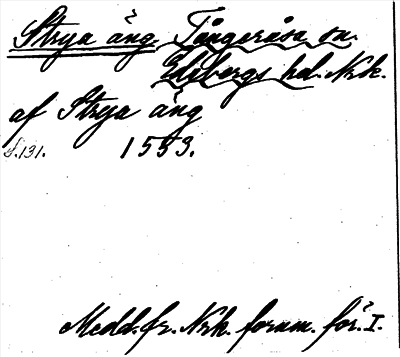 Strya äng. Tångeråsa sn.
Edsbergs hd. Nrk.
af Strya äng
s. 131. 1553.
Medd. fr. Nrk. fornm. för. I.